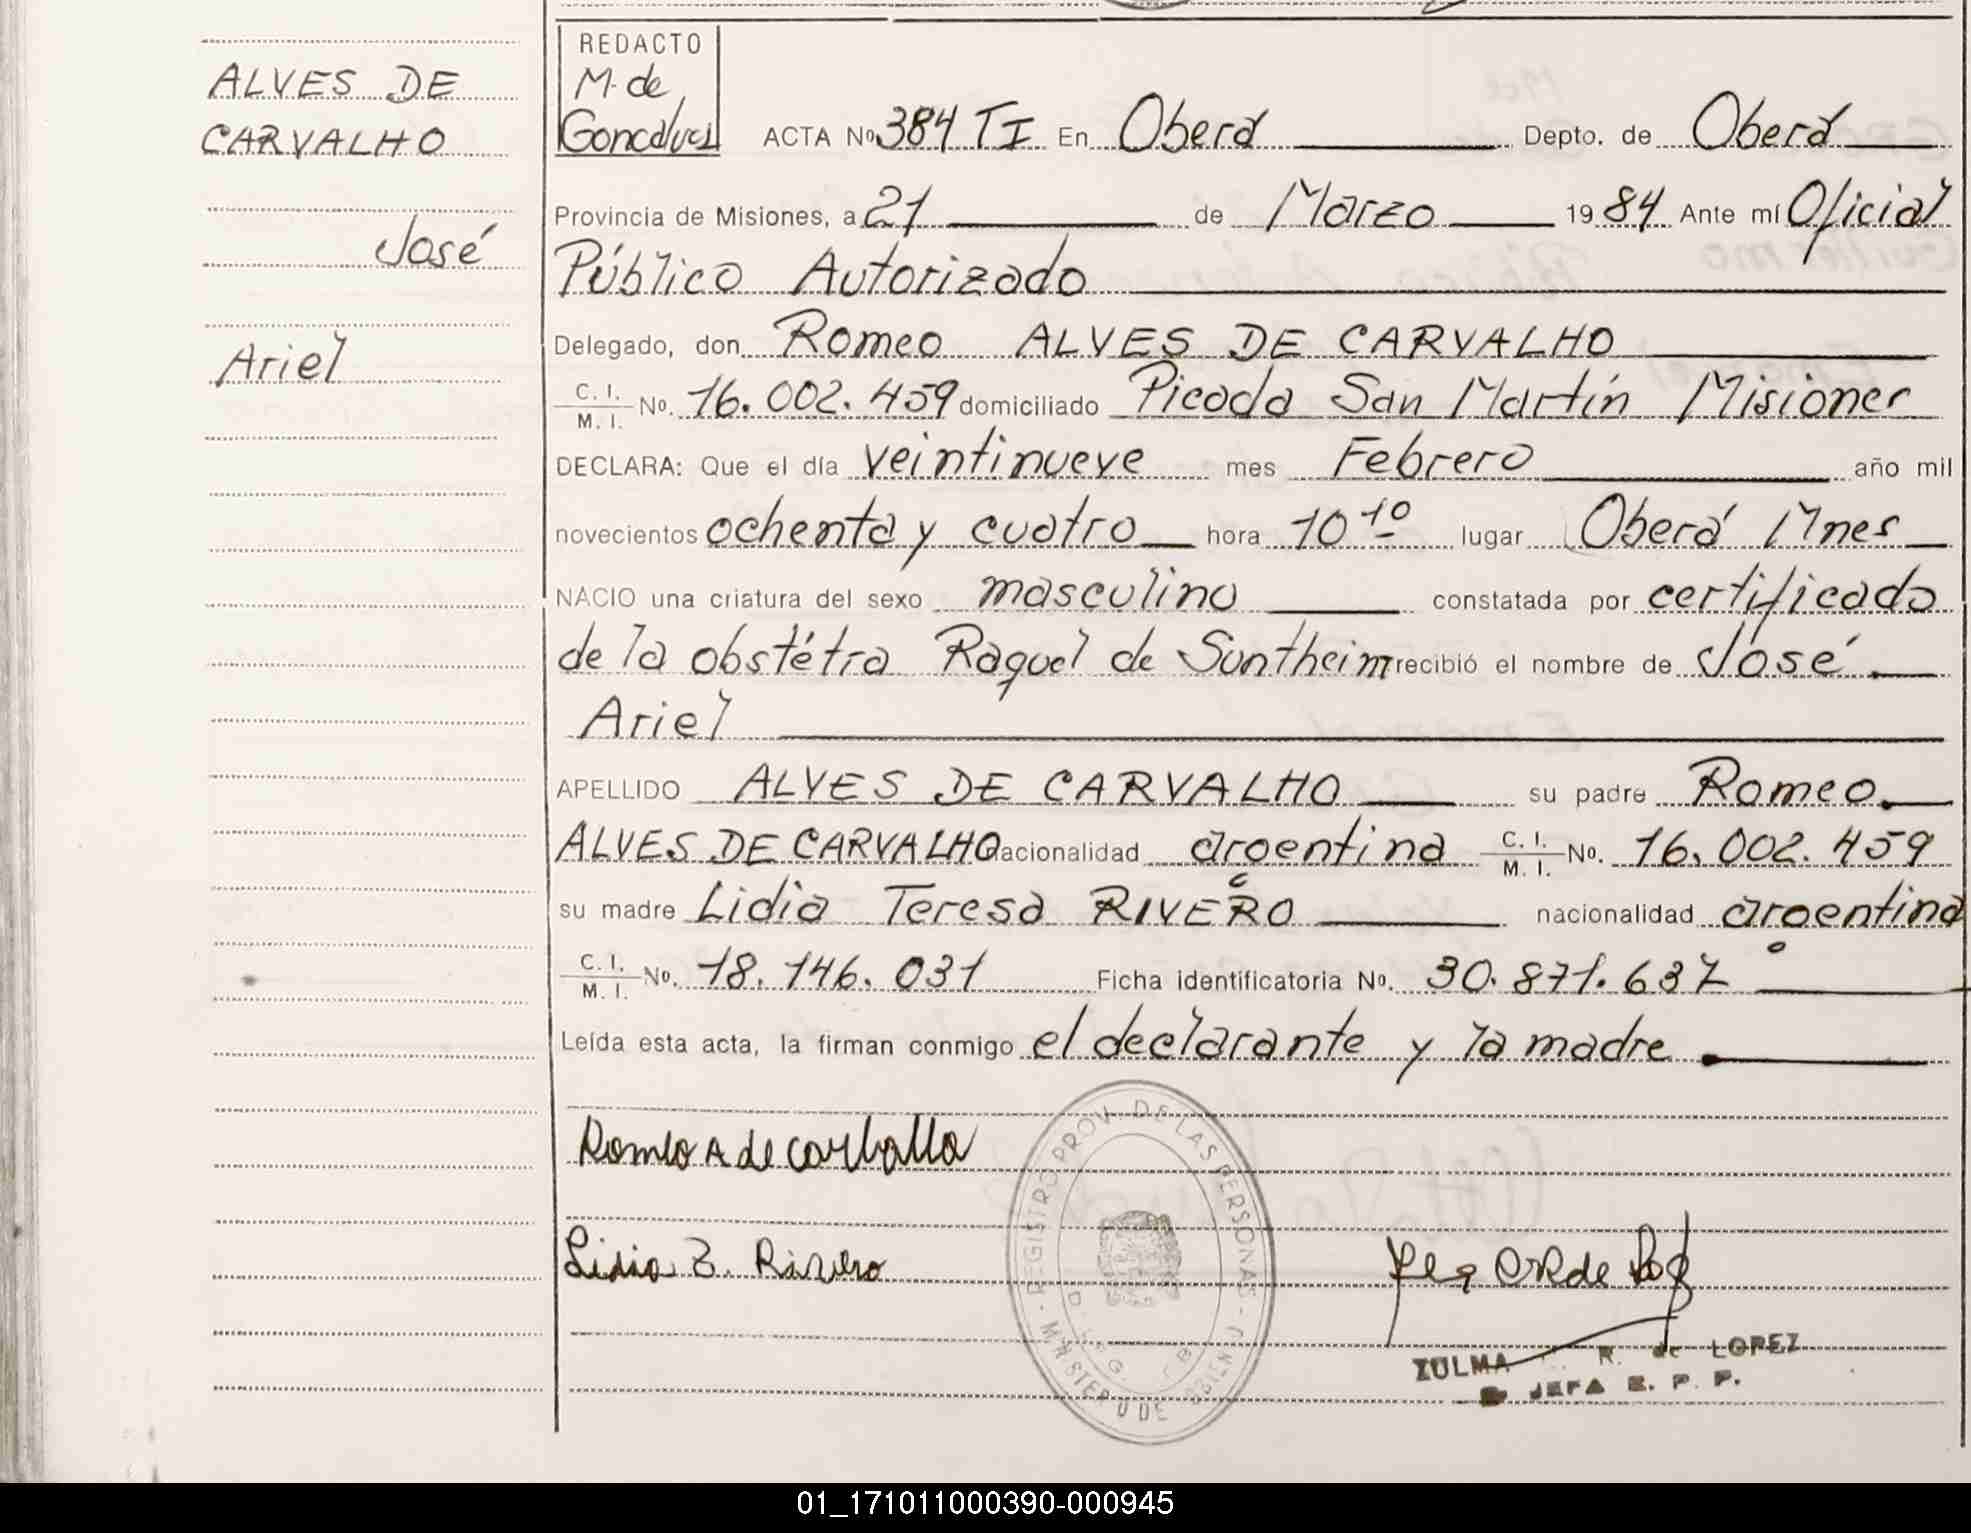 ALVES DE
CARVALHO
José
Ariel
REDACTO
M. de
Goncalves
ACTA No. 384 TI En Oberá Depto. de Oberá
Provincia de Misiones, a 21 de Marzo 1984 Ante mí Oficial
Público Autorizado
Delegado, don Romeo ALVES DE CARVALHO
C. I. / M. I. No. 16.002.459 domiciliado Picada San Martín Misiones
DECLARA: Que el día veintinueve mes Febrero año mil
novecientos ochenta y cuatro hora 10 10 lugar Oberá Mnes
NACIO una criatura del sexo masculino constatada por certificado
de la obstétra Raquel de Suntheim recibió el nombre de José
Ariel
APELLIDO ALVES DE CARVALHO su padre Romeo
ALVES DE CARVALHO nacionalidad argentina C. I. / M. I. No. 16.002.459
su madre Lidia Teresa RIVERO nacionalidad argentina
C. I. / M. I. No. 18.146.031 Ficha identificatoria No. 30.871.637
Leída esta acta, la firman conmigo el declarante y la madre
Romeo A de carballo
REGISTRO PROV. DE LAS PERSONAS
Lidia T. Rivero
ZULMA R. de LOPEZ
JEFA E. P. P.
01_171011000390-000945